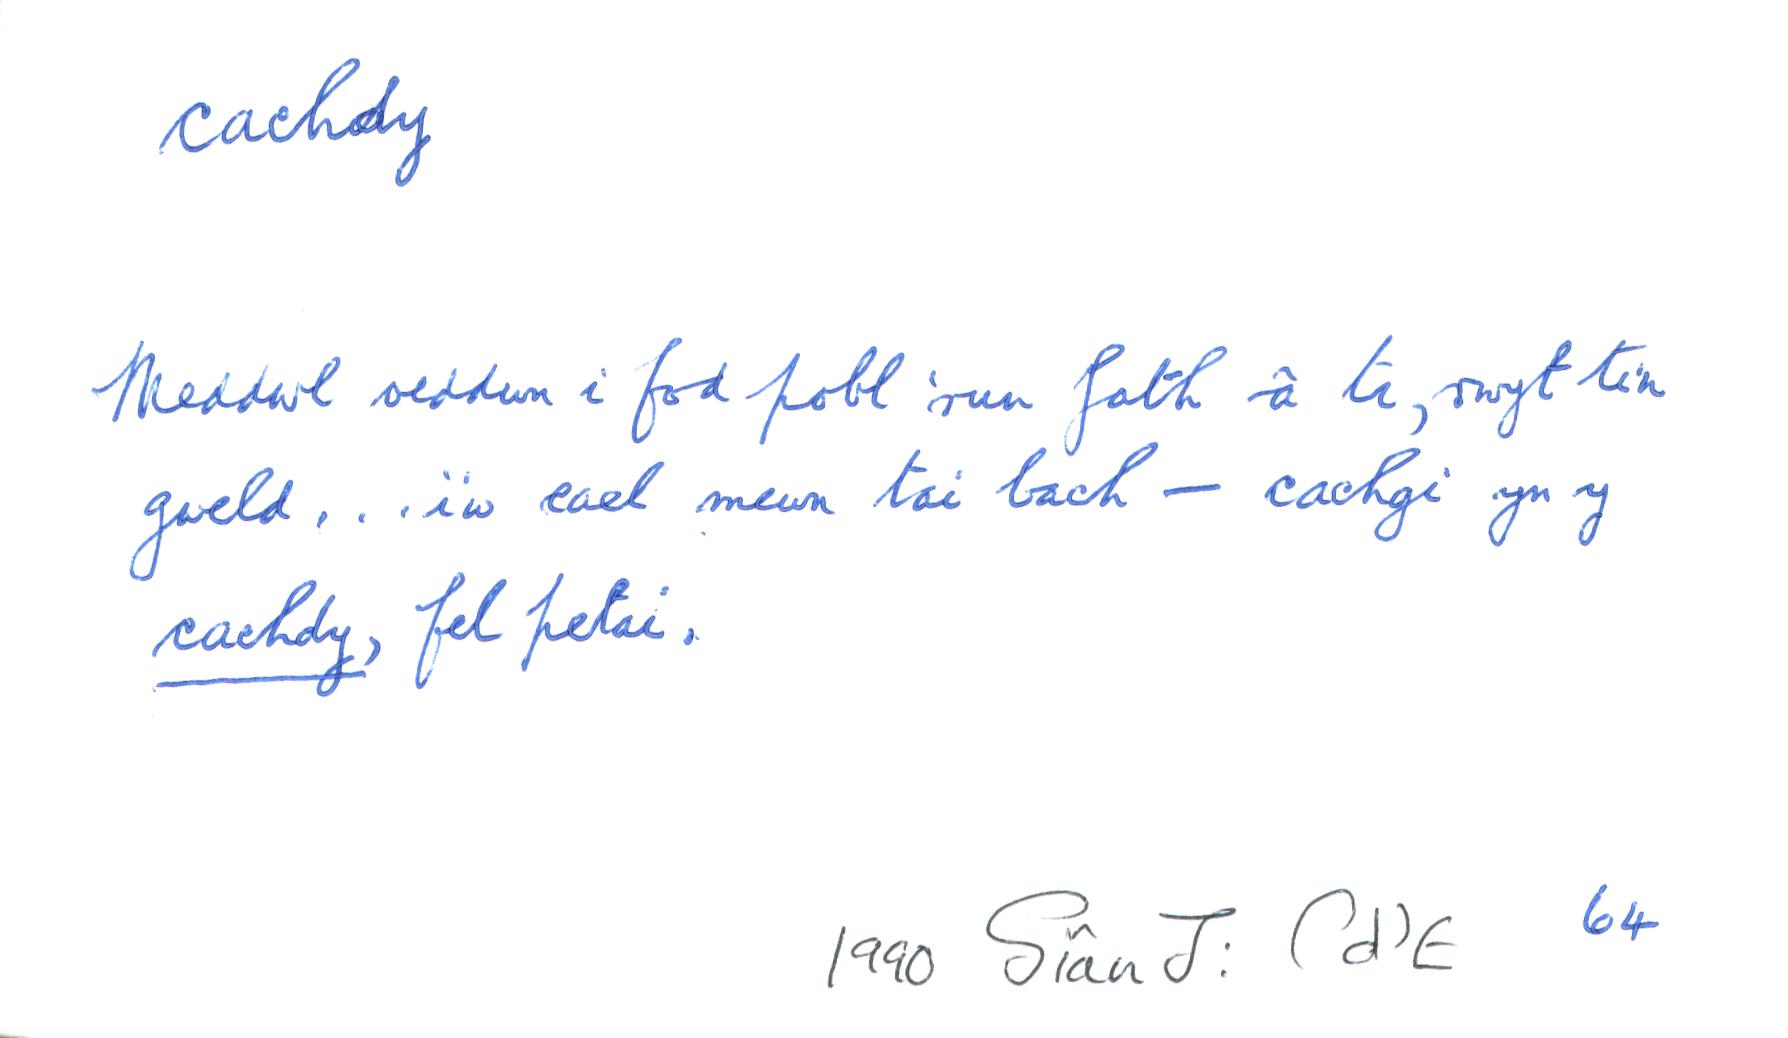 cachdy
Meddwl oeddwn i fod pobl 'run fath â ti, rwyt ti'n
gweld... i'w cael mewn tai bach — cachgi yn y
cachdy, fel petai.
1990 Siân J: Cd'E 64